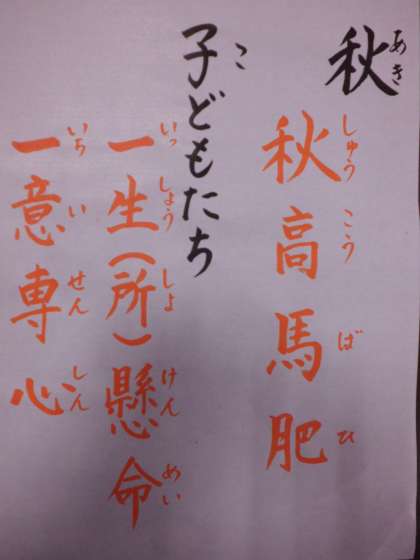 秋
あき
秋高馬肥
しゅうこうばひ
子どもたち
こ
一生(所)懸命
いっしょう(しょ)けんめい
一意専心
いちいせんしん